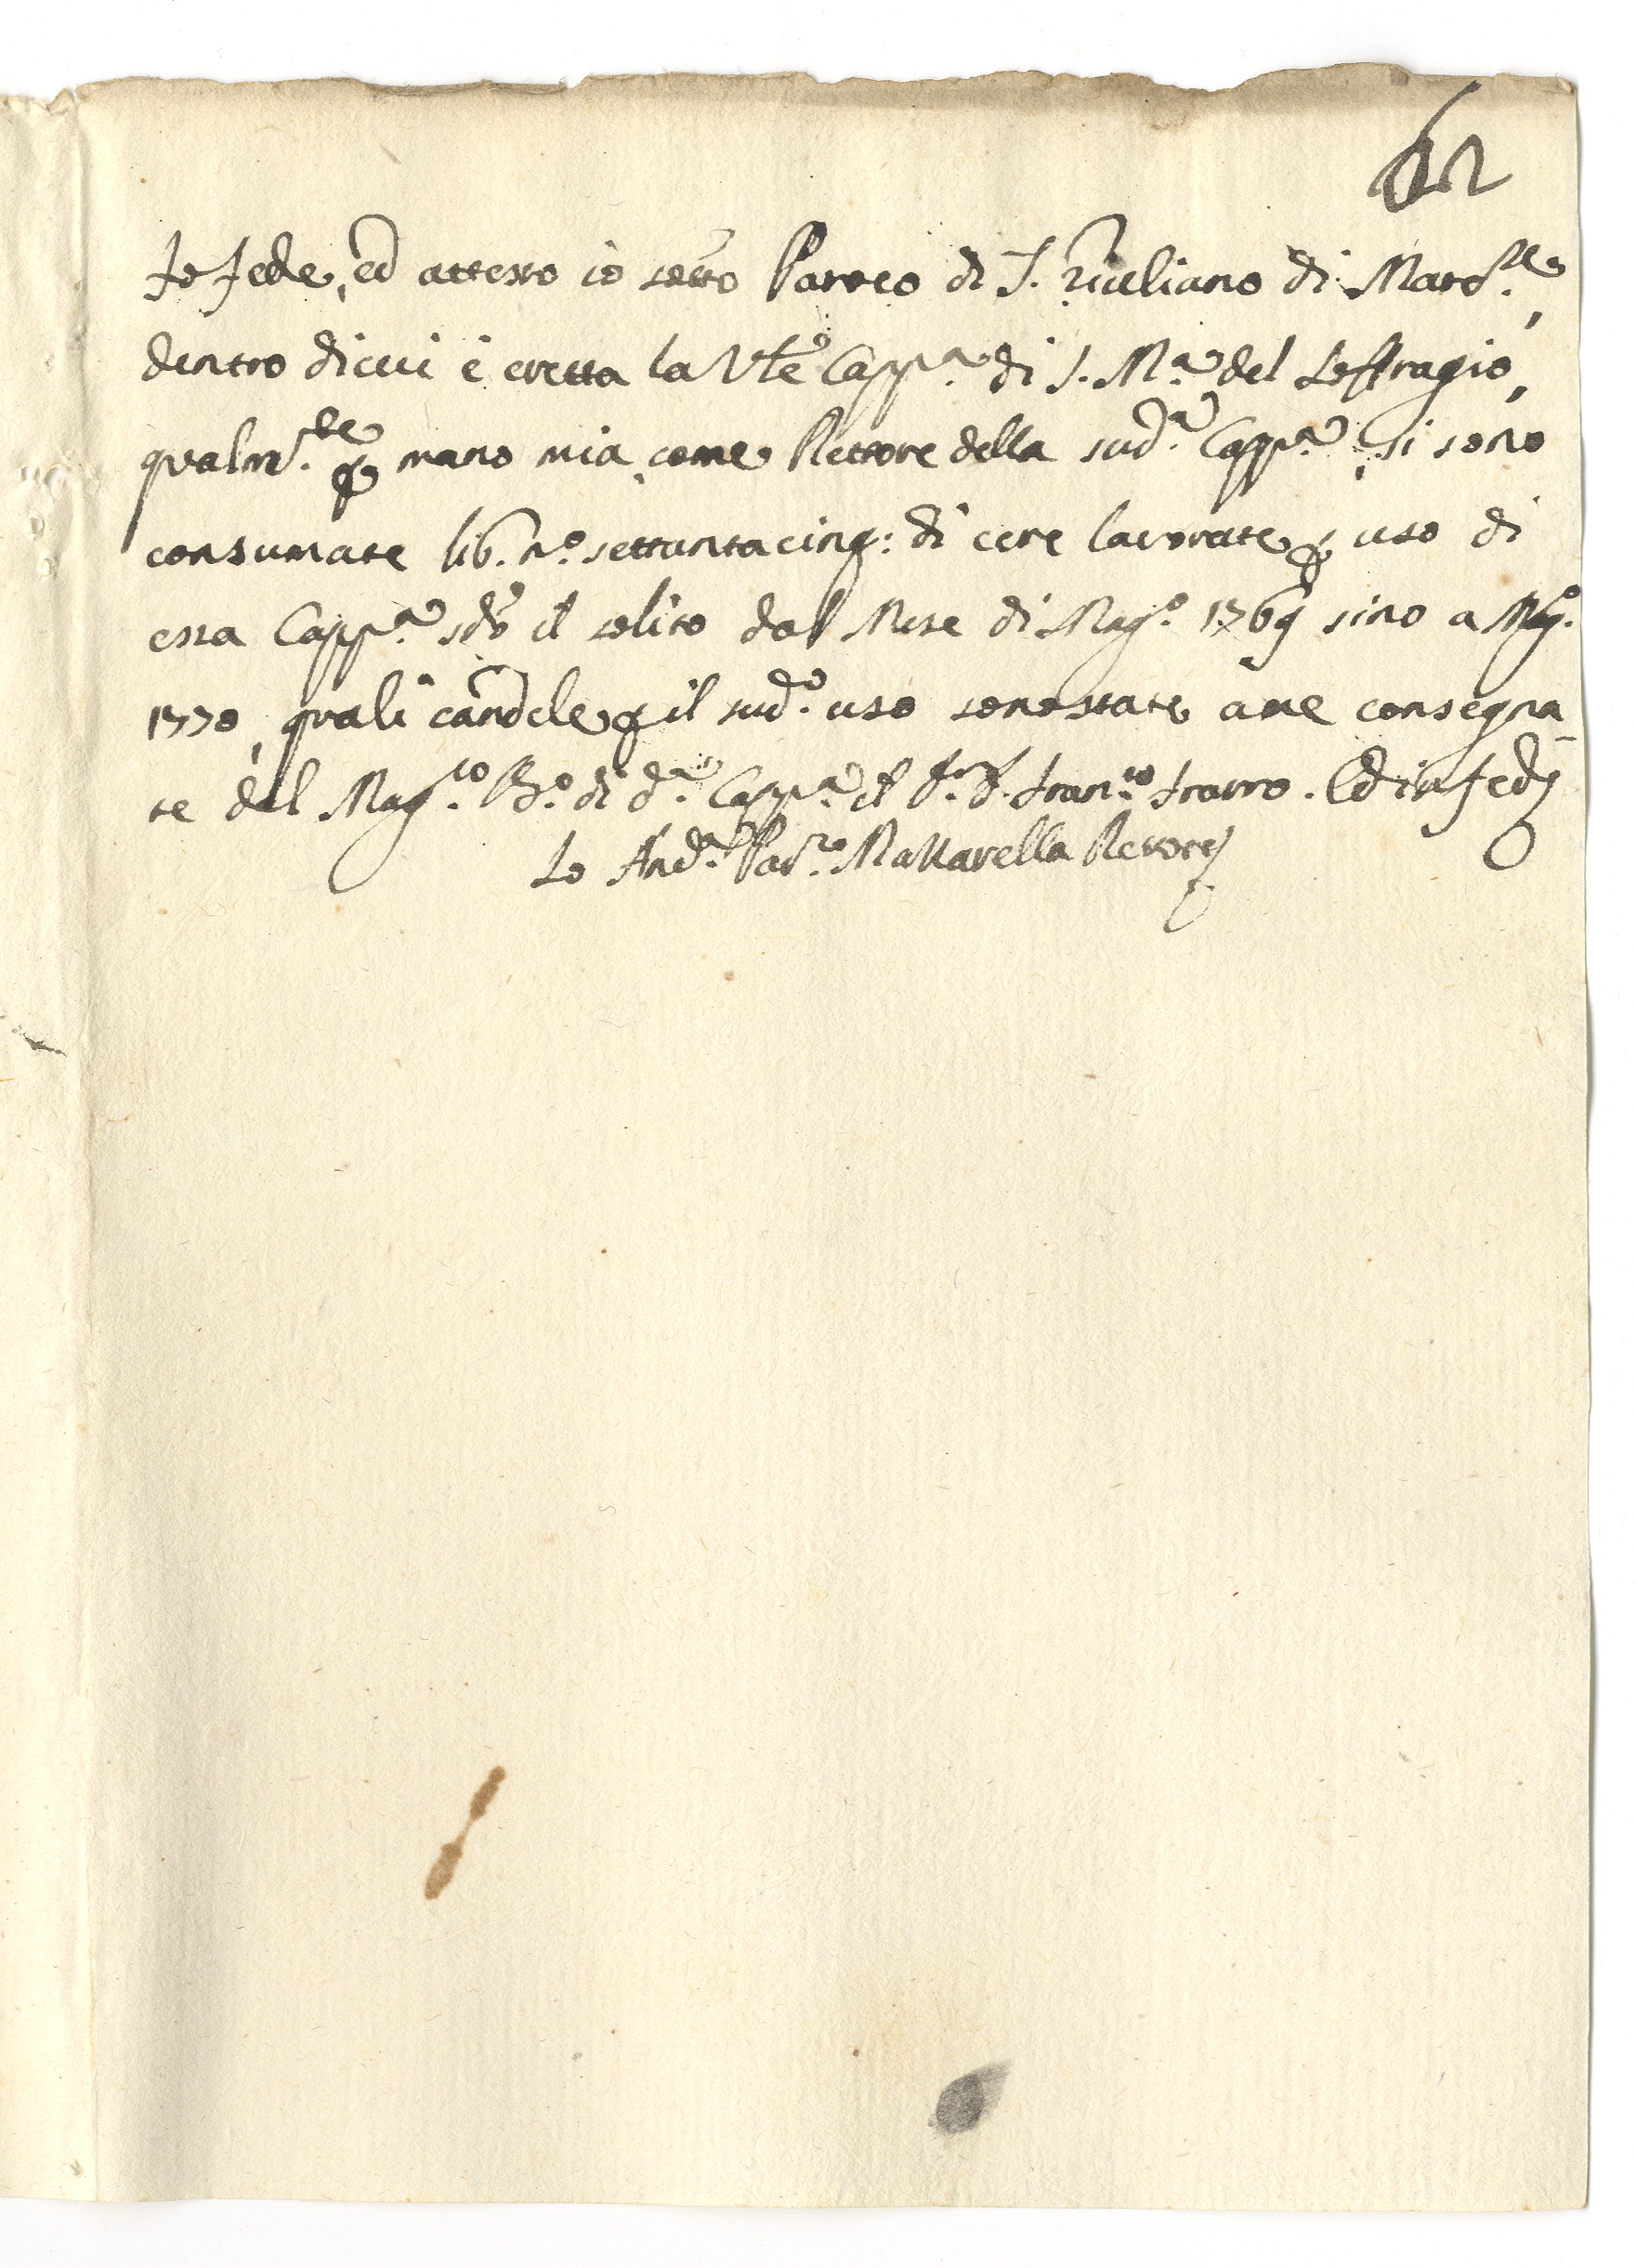 62
Fo fede, ed attesto io sotto Paroco di S. Giuliano di Mars.le,
dentro di cui è eretta la Vle Capp.a di S. M.a del Soffragio,
qualm.te p mano mia, come Rettore della sud.a Capp.a, si sono
consumate lib. n.o settantacinq: di cere lavorate p uso di
essa Capp.a sdo il solito dal Mese di Mag.o 1769 sino a Mag.o
1770, quali candele p il sud.o uso sono state à me consegna-
te dal Mag.co di d.a Capp.a il D. Fran.co Ed in fede
Io And.a Par.o Mattarella Rettore